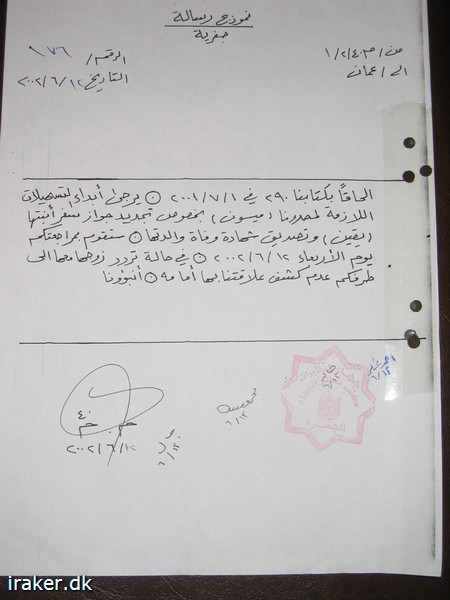 نموذج رسالة
جفرية
من/م٤٠/٢/١
الرقم/ ٩٧٦
الى/عمان
التاريخ ٢٠٠٢/٦/١٢
الحاقاً بكتابنا ٢٩٠ في ٢٠٠١/٧/١ ⊙ يرجى أبداء التسهيلات
اللازمة لمصدرنا (ميسون) بخصوص تجديد جواز سفر أبنتها
(يقين) وتصديق شهادة وفاة والدتها ⊙ ستقوم بمراجعتكم
يوم الأربعاء ٢٠٠٢/٦/١٢ ⊙ في حالة تردد زوجها معها الى
طرفكم عدم كشف علاقتنا بها أمامه ⊙ أنبؤونا
م.٤٠
٢٠٠٢/٦/١٢
٦/١٢
٦/١٢
iraker.dk